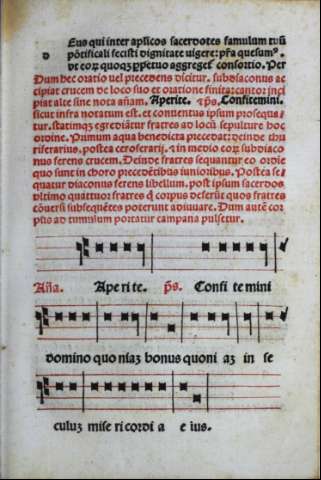 Eus qui inter aplicos sacerdotes famulum tuũ
põtificali fecisti dignitate vigere: pr̃a quesumꝰ.
D
vt eorũ quoqꝫ ppetuo aggreget̃ consortio. Per
Dum hec oratio vel precedens dicitur. subdiaconus ac
cipiat crucem de loco suo et oratione finita: cantor inci
piat alte sine nota añam. Aperite. ⁊ p̃s. Confitemini.
sicut infra notatum est. et conventus ipsum prosequa
tur. statimqꝫ egrediãtur fratres ad locũ sepulture hoc
ordine. Primum aqua benedicta precedat: deinde thu
riferarius. postea ceroferarij. ⁊ in medio eorũ subdiaco
nus ferens crucem. Deinde fratres sequantur eo ordie
quo sunt in choro precedẽtibus iunioribus. Postea se
quatur diaconus ferens libellum. post ipsum sacerdos
vltimo quattuor fratres q̃ corpus deferũt quos fratres
cõuersi subsequẽtes poterunt adiuuare. Dum autẽ cor
pus ad tumulum portatur campana pulsetur.
Aña. Ape ri te. p̃s. Confi te mini
domino quo niaꝫ bonus quoni aꝫ in se
culuꝫ mise ri cordi a e ius.